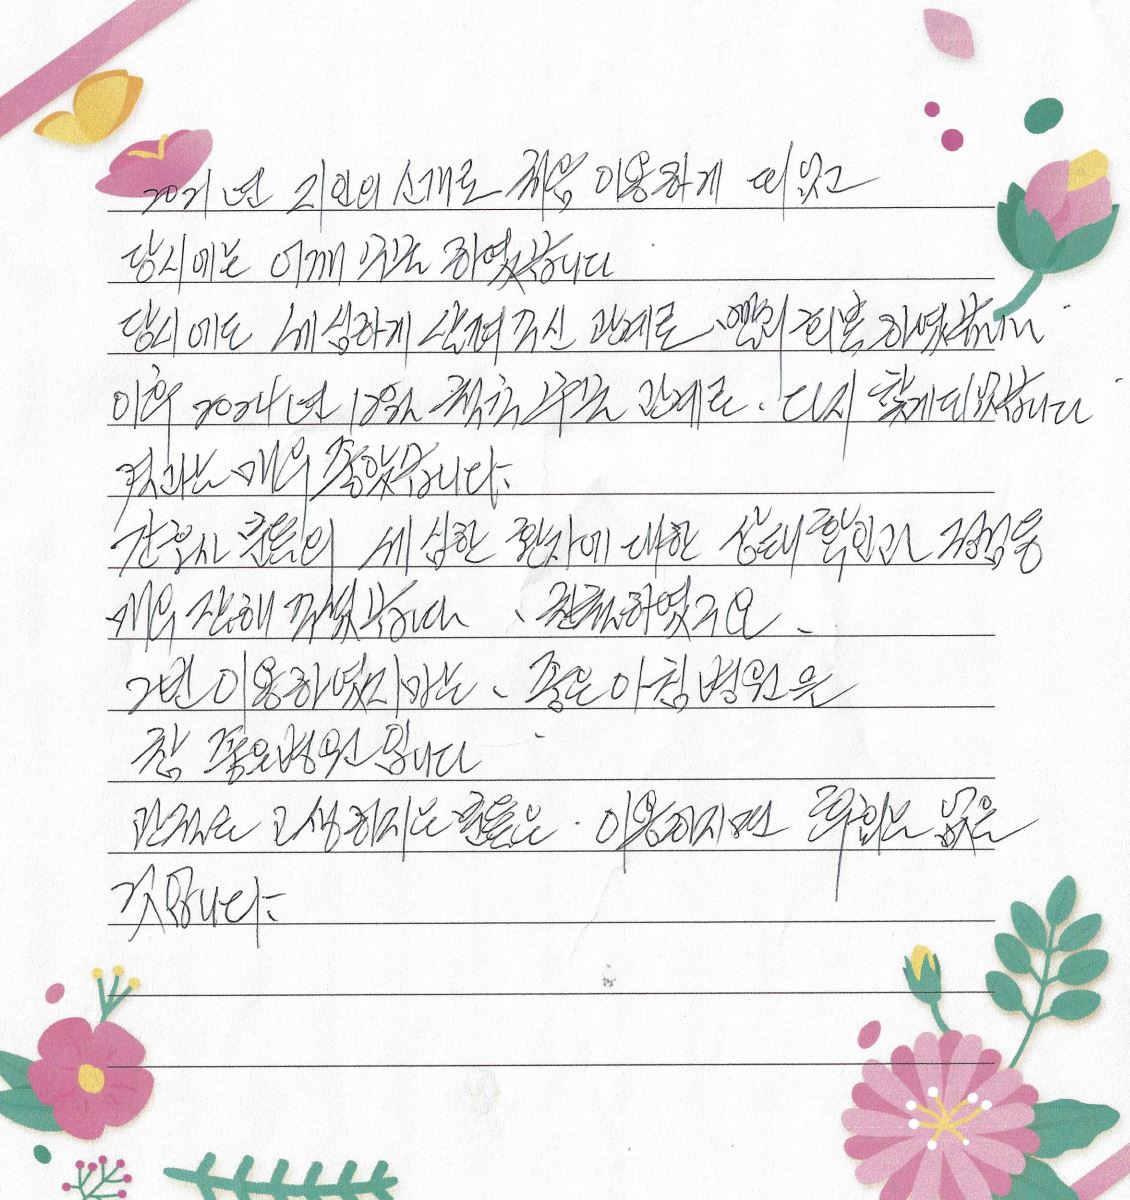 2021년 지인의 소개로 처음 이용하게 되었고
당시에는 어깨 수술 하였습니다
당시에도 세심하게 살펴주신 관계로, 빨리 회복 하였습니다.
이후 2024년 12월 척추 수술 관계로. 다시 찾게되었습니다
결과는 매우 좋았습니다.
간호사 분들의 세심한 환자에 대한 상태확인과 점검등
매우 잘해 주셨습니다, 친절하였구요.
2번 이용하였지마는, 좋은아침병원은
참 좋은병원 입니다
관절로 고생하지는 분들은. 이용하지면 후회는 없을
것입니다.